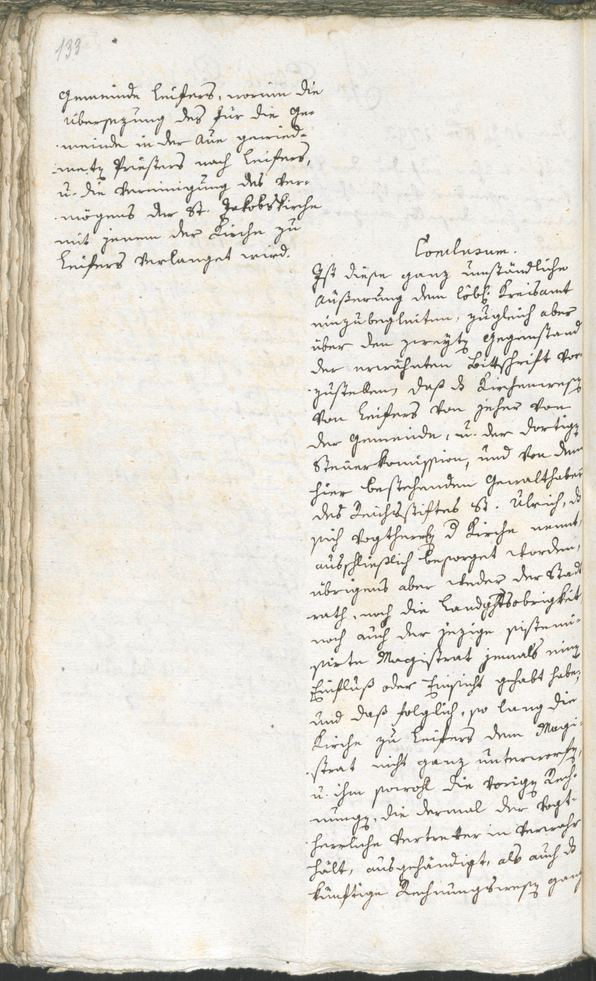 133
Gemeinde Leifers, worinn die
Übersezung des für die Ge-
meinde in der Aue gewied-
meten Priesters nach Leifers,
u. die Vereinigung des Ver-
mögens der St. Jakobskirche
mit jenem der Kirche zu
Leifers verlanget wird.
Conclusum.
Ist diese ganz umständliche
Äußerung dem löbl. Kreisamt
einzubegleiten, zugleich aber
über den zweyten Gegenstand
der erwähnten Bittschrift vor-
zustellen, daß das Kirchenwesen
von Leifers von jeher von
der Gemeinde, u. der dortigen
Steuerkomission, und von dem
hier bestehenden Gewalthaber
des Reichsstiftes St. Ulrich, der
sich Vogtherr der Kirche nennt,
ausschließlich besorget worden,
übrigens aber weder der Stadt
rath, noch die Landgtsobrigkeit
noch auch der jezige sistemi-
sirte Magistrat jemals einen
Einfluß oder Einsicht gehabt habe,
und daß folglich, so lang die
Kirche zu Leifers dem Magi-
strat nicht ganz unterworfen,
u. ihm sowohl die vorigen Rech-
nungen, die dermal der Vogt-
herrliche Vertretter in Verwahr
hält, ausgehändigt, als auch das
künftige Rechnungswesen ganz